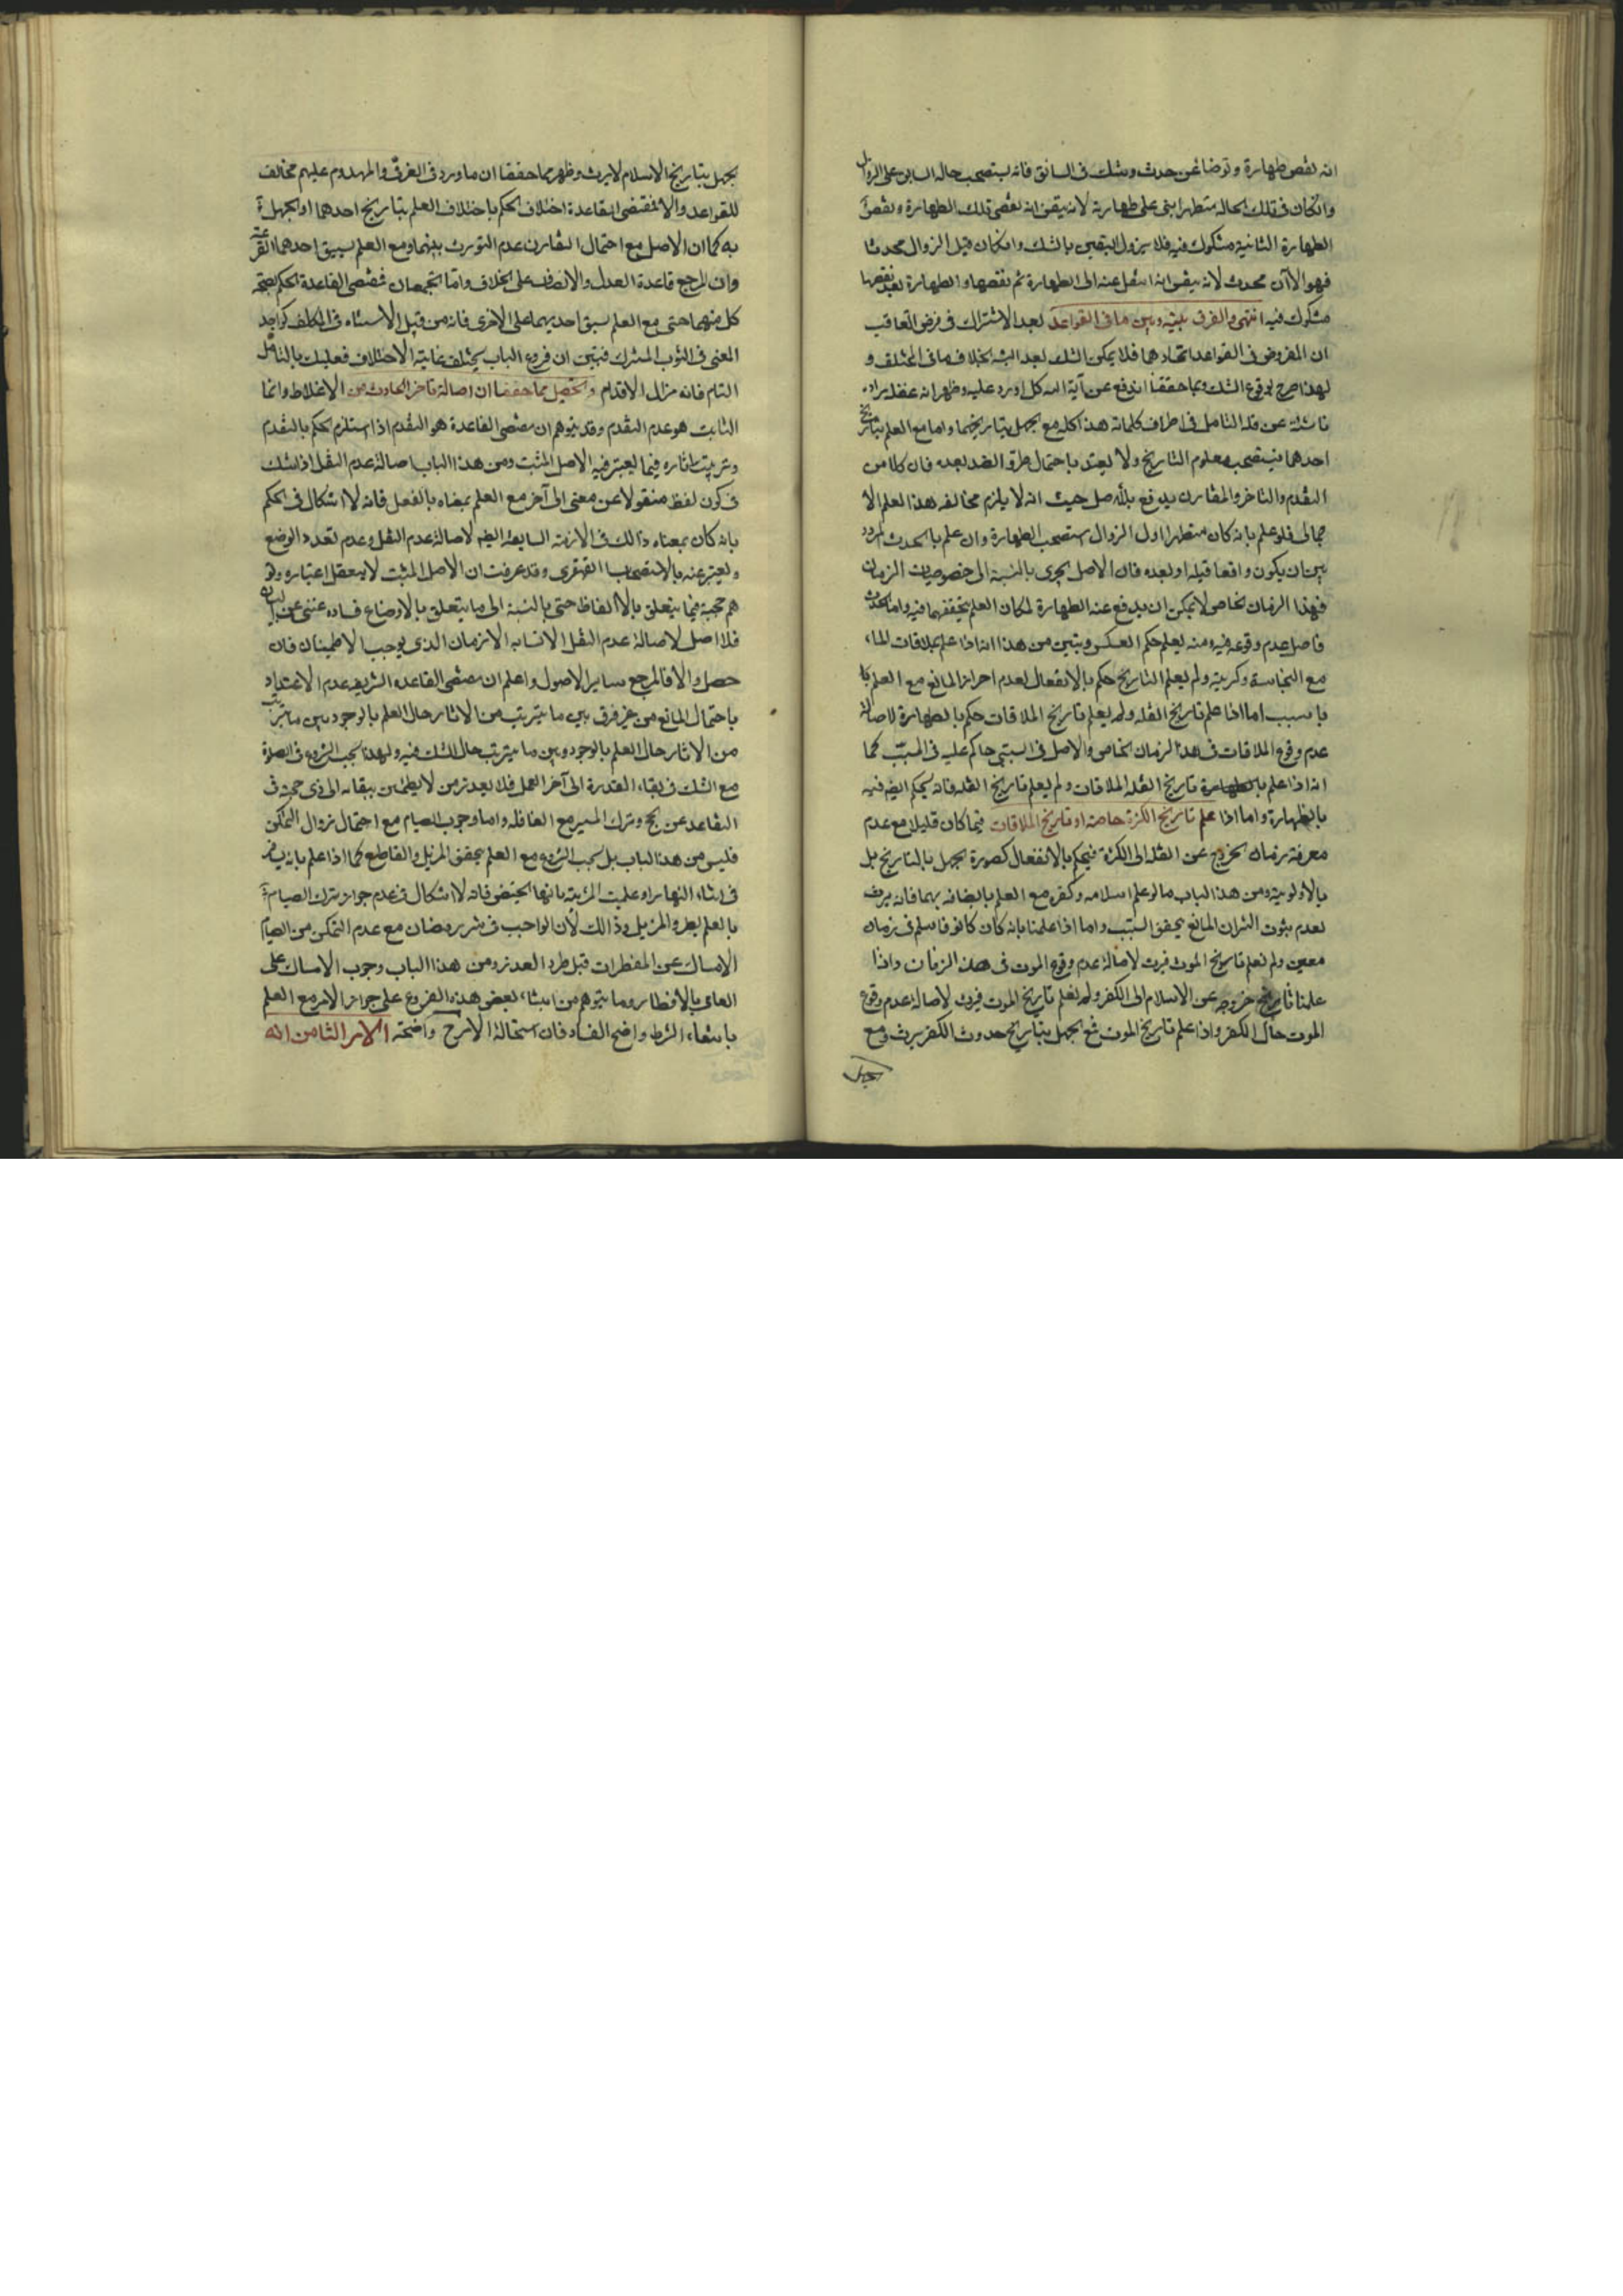 انه نقض طهارة و توضا عن حدث و شك فى السابق فانه يستصحب حاله السابق على الزوال
وان كان فى تلك الحالة متطهرا بنى على طهارته لانه تيقن انه نقض تلك الطهارة و نقض
الطهارة الثانية مشكوك فيه فلا يزول اليقين بالشك وان كان قبل الزوال محدثا
فهو الآن محدث لانه تيقن انه انتقل عنه الى الطهارة ثم نقضها و الطهارة بعد نقضها
مشكوك فيه انتهى و الفرق بينه و بين ما فى القواعد بعد الاشتراك فى فرض التعاقب
ان المفروض فى القواعد اتحادهما فلا يمكن الشك بعد البته بخلاف ما فى المختلف و
لهذا صرح بوقوع الشك و بما حققنا اندفع عن آية الله كل اورد عليه و ظهر انه
ناش عن قلة التامل فى اطراف كلماته هذا كله مع الجهل بتاريخهما و اما مع العلم بتاريخ
احدهما فيستصحب معلوم التاريخ ولا يعتد باحتمال طرو الضد بعده فان كلا من
التقدم والتاخر والتقارن يدفع بالاصل حيث انه لا يلزم مخالفه هذا العلم الا
جمالى فلو علم بانه كان متطهرا اول الزوال استصحب الطهارة وان علم بالحدث المردد
بين ان يكون واقعا قبله او بعده فان الاصل يجرى بالنسبة الى خصوصيات الزمان
فهذا الزمان الخاص لا يمكن ان يدفع عنه الطهارة لمكان العلم بتحققها فيه واما الحدث
فاصل عدم وقوعه فيه ومنه يعلم حكم العكس و يتبين من هذا انه اذا علم بملاقات الماء
مع النجاسة وكريته ولم يعلم التاريخ حكم بالانفعال لعدم احراز المانع مع العلم
بالسبب اما اذا علم تاريخ القله ولم يعلم تاريخ الملاقات حكم بالطهارة لاصالة
عدم وقوع الملاقات فى هذا الزمان الخاص والاصل فى السببى حاكم عليه فى المسبب كما
انه اذا علم تاريخ القلة الملاقات ولم يعلم تاريخ القله فانه يحكم ايضا فيه
بالطهارة واما اذا علم تاريخ الكرة خاصة او تاريخ الملاقات فيما كان قليلا مع عدم
معرفة زمان الخروج عن القله الى الكثرة فيحكم بالانفعال كصورة الجهل بالتاريخ بل
بالاولوية ومن هذا الباب ما لو علم اسلامه وكفره مع العلم باتصافه بهما فانه يرث
لعدم ثبوت المانع بتحقق السبب واما اذا علمنا بانه كان كافرا فاسلم فى زمان
معين ولم نعلم تاريخ الموت فيرث لاصالة عدم وقوع الموت فى هذا الزمان واذا
علمنا تاريخ خروجه عن الاسلام الى الكفر ولم نعلم تاريخ الموت فيرث لاصالة عدم وقوع
الموت حال الكفر واذا علم تاريخ الموت فمع الجهل بتاريخ حدوث الكفر يرث ومع
الجهل
الجهل بتاريخ الاسلام لا يرث وظهر مما حققنا ان ما ورد فى الغرقى والمهدوم عليهم مخالف
للقواعد والا لمقتضى القاعدة اختلاف الحكم باختلاف العلم بتاريخ احدهما او الجهل
به كما ان الاصل مع احتمال التقارن عدم التورث بينهما و مع العلم بسبق احدهما القرعة
وان المرجع قاعدة العدل والانصاف على الخلاف واما الجمعتان فمقتضى القاعدة الحكم بصحة
كل منهما حتى مع العلم بسبق احديهما على الاخرى فانه من قبيل الاشتباه فى المكلف كواجد
المنى فى الثوب المشترك فتبين ان فروع الباب يختلف غاية الاختلاف فعليك بالتامل
التام فانه مزال الاقدام وتحصل مما حققنا ان اصالة تاخر الحادث من الاغلاط وانما
الثابت هو عدم التقدم وقد يتوهم ان مقتضى القاعدة هو التقدم اذا استلزم الحكم بالتقدم
وترتيب اثاره فيما يعتبر فيه الاصل المثبت ومن هذا الباب اصالة عدم النقل اذا شك
فى كون لفظ منقولا عن معنى الى آخر مع العلم بمعناه بالفعل فانه لا اشكال فى الحكم
بانه كان بمعناه ذالك فى الازمنة السابقة ايضا لاصالة عدم النقل و عدم تعدد الوضع
و يعبر عنه بالاستصحاب القهقرى وقد عرفت ان الاصل المثبت لا يعقل اعتباره و
هم حجية فيما يتعلق بالالفاظ حتى بالنسبة الى ما يتعلق بالاوضاع فساده غنى عن البيان
فلا اصل لاصالة عدم النقل الا تشابه الازمان الذى يوجب الاطمينان فان
حصل والا فالمرجع ساير الاصول واعلم ان مقتضى القاعده الشريفه عدم الاعتداد
باحتمال المانع من غير فرق بين ما يترتب من الاثار حال العلم بالوجود وبين ما يترتب
من الاثار حال العلم بالوجود وبين ما يترتب حال الشك فيه ولهذا يجب الشروع فى الصلوة
مع الشك فى بقاء القدرة الى آخر العمل فلا يعذر من لا يطمئن ببقائه الى ذى حجة فى
التقاعد عن الحج وترك المسير مع القافله واما وجوب الصيام مع احتمال زوال التمكن
فليس من هذا الباب بل يجب الشروع مع العلم بتحقق المزيل والقاطع كما اذا علم بانه يسافر
فى اثناء النهار او علمت المرئة بانها تحيض فانه لا اشكال فى عدم جواز ترك الصيام
بالعلم بطرو المزيل وذالك لان الواجب فى شهر رمضان مع عدم التمكن من الصيام
الامساك عن المفطرات قبل طرو العذر ومن هذا الباب وجوب الامساك على
العاصى بالافطار وما يتوهم من ابتناء بعض هذه الفروع على جواز الامر مع العلم
بانتفاء الشرط واضح الفساد فان استحالة الامر ح واضحة الامر الثامن انه